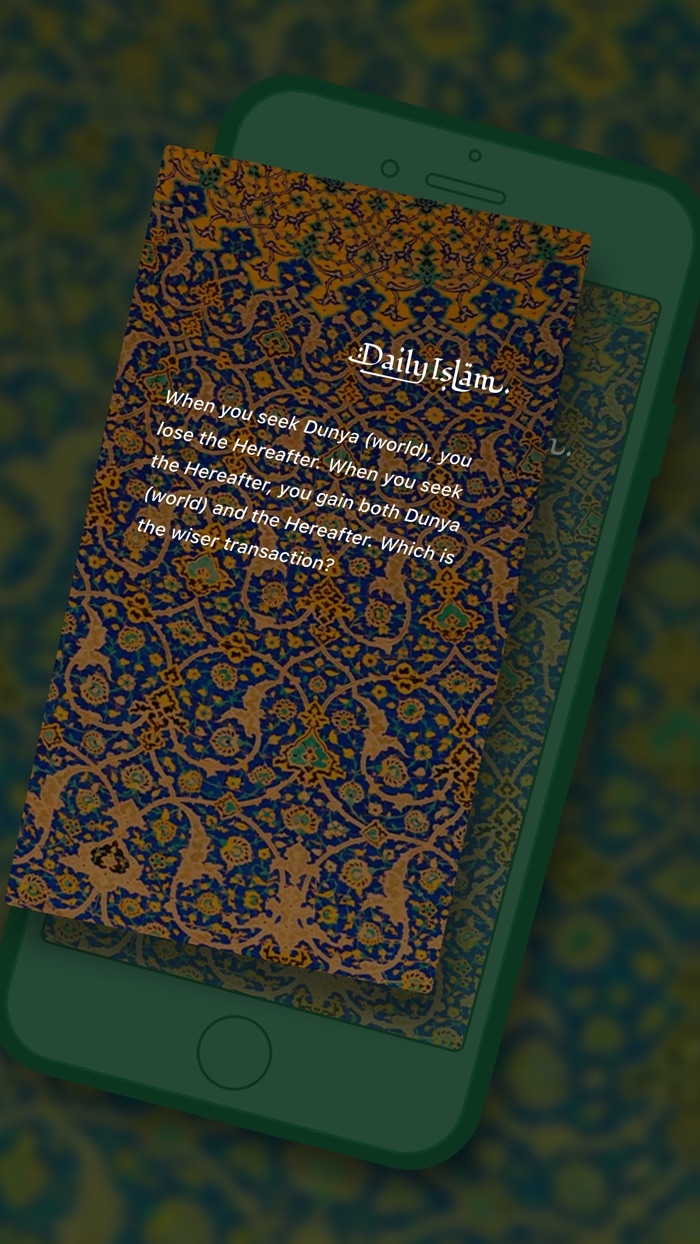 Daily Islām
When you seek Dunya (world), you
lose the Hereafter. When you seek
the Hereafter, you gain both Dunya
(world) and the Hereafter. Which is
the wiser transaction?